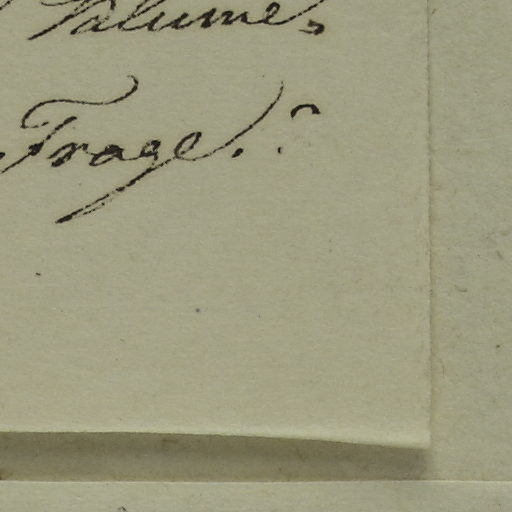 Volume,
Frage.?